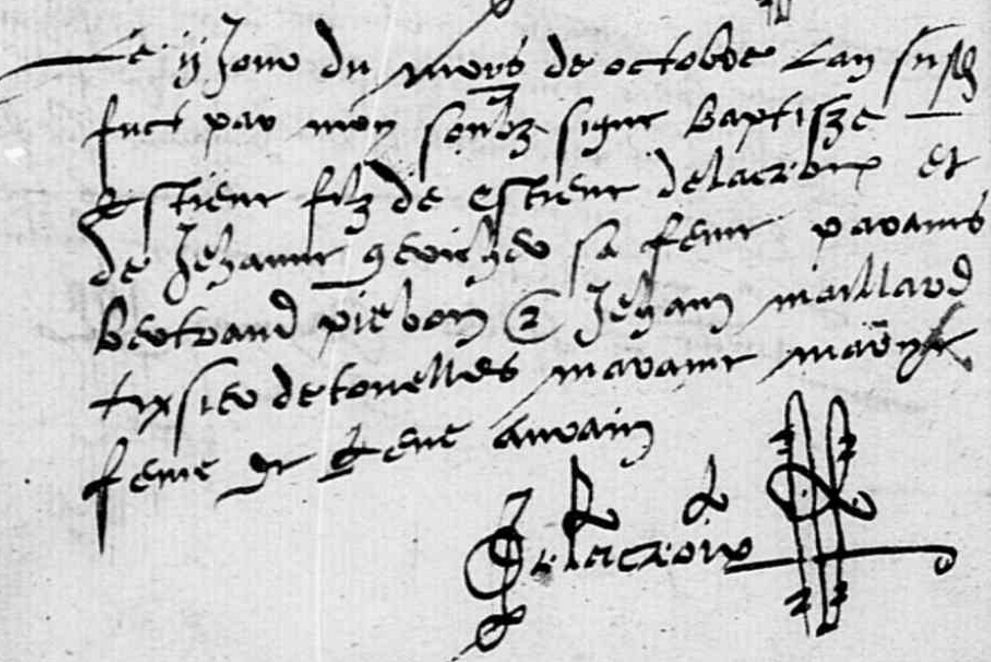 Le ij Jour du moys de octobre Lan susd
fuct par moy soubz signe baptisze
Estiene filz de estiene delacroix et
de Jehanne sa feme parains
bertrand piebon & Jehan maillard
texsier de touelles maraine
feme de Rene
Delacroix